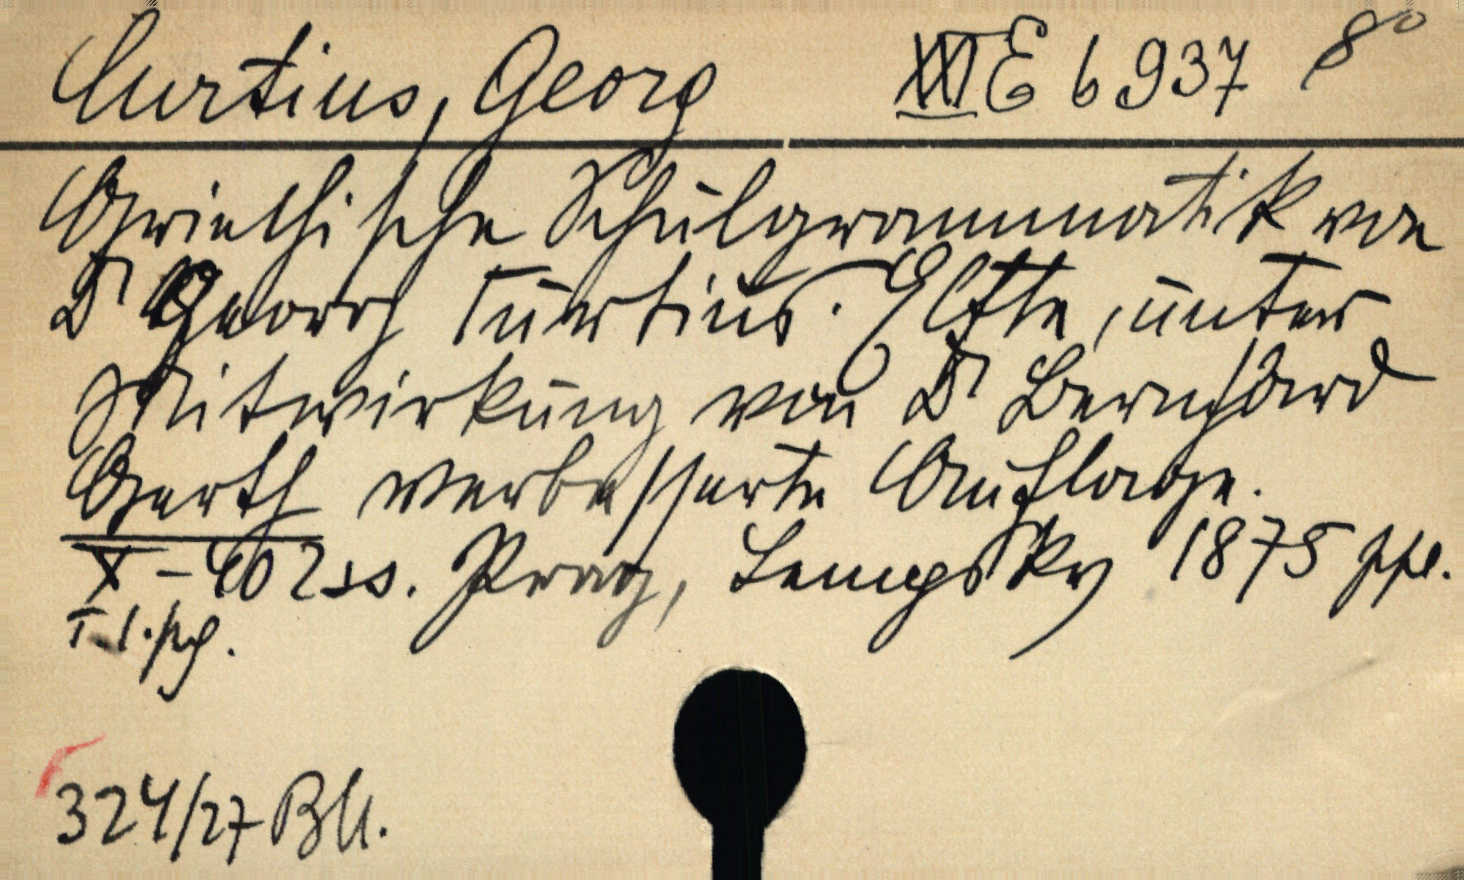 Curtius, Georg XXI E b 937 8°
Griechische Schulgrammatik von
Dr Georg Curtius. Elfte, unter
Mitwirkung von Dr Bernhard
Gerth verbesserte Auflage.
X-402 ss. Prag, Tempsky 1875
324/27 Bll.